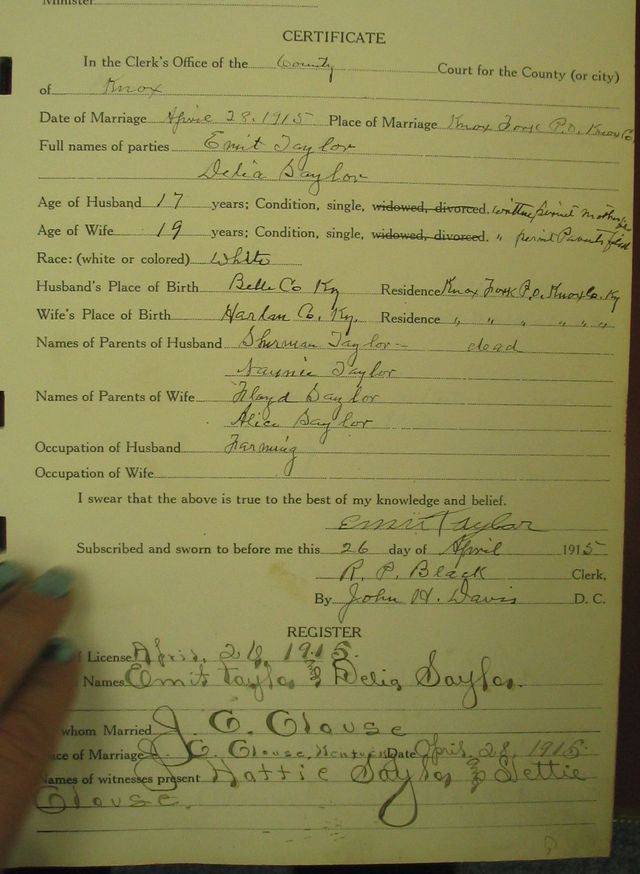 Minister
CERTIFICATE
In the Clerk's Office of the County Court for the County (or city)
of Knox
Date of Marriage April 28, 1915 Place of Marriage Knox Fork P.O. Knox Co.
Full names of parties Emit Taylor
Delia Saylor
Age of Husband 17 years; Condition, single, widowed, divorced. written permit Mother
Age of Wife 19 years; Condition, single, widowed, divorced. " permit Parents filed
Race: (white or colored) White
Husband's Place of Birth Bell Co Ky Residence Knox Fork P.O. Knox Co. Ky
Wife's Place of Birth Harlan Co. Ky. Residence " " " " " "
Names of Parents of Husband Shurman Taylor - dead
Nannie Taylor
Names of Parents of Wife Floyd Saylor
Alice Saylor
Occupation of Husband Farming
Occupation of Wife
I swear that the above is true to the best of my knowledge and belief.
Emit Taylor
Subscribed and sworn to before me this 26 day of April 1915
R. P. Black Clerk,
By John H. Davis D. C.
REGISTER
of License April, 26, 1915.
Names Emit Taylor & Delia Saylor.
whom Married J. C. Clouse
ace of Marriage J. C. Clouse, Kentucky Date April 28, 1915
Names of witnesses present Hattie Saylor & Gettie
Clouse.